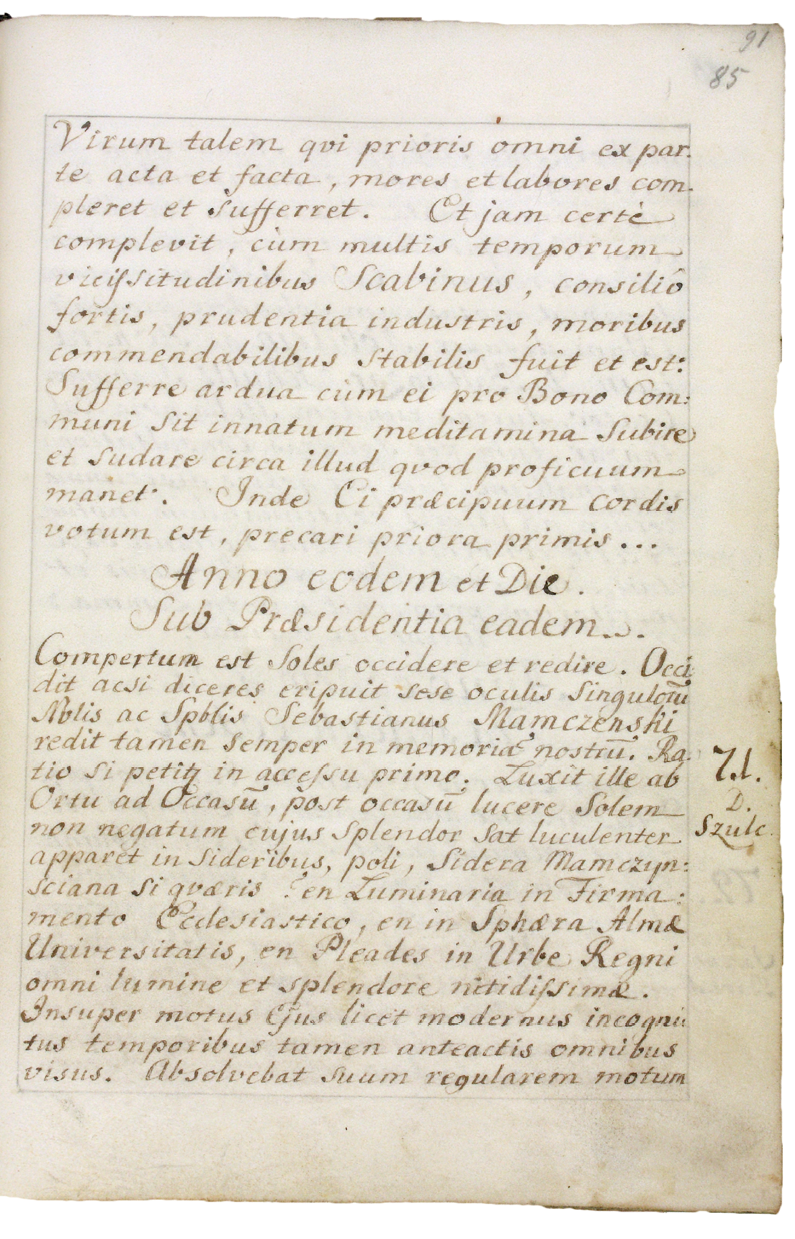 91
85
Virum talem qvi prioris omni ex par-
te acta et facta, mores et labores com-
pleret et sufferret. Et jam certè
complevit, cùm multis temporum
vicißsitudinibus Scabinus, consiliô
fortis, prudentia industris, moribus
commendabilibus stabilis fuit et est:
Sufferre ardua cùm ei prô Bono Com:
muni sit innatum meditamina subire
et sudare circa illud qvod proficuum
manet. Inde Ei præcipuum cordis
votum est, precari priora primis...
Anno eodem et Die.
Sub Præsidentia eadem...
Compertum est Soles occidere et redire. Occi
dit acsi diceres eripuit sese oculis singulorū
Nblis ac Spblis Sebastianus Mamczenski
redit tamen semper in memoria nostrū. Ra-
tio si petitq in accessu primo. Luxit ille ab
Ortu ad Occasū, post occasū lucere Solem
non negatum cujus splendor sat luculenter
apparet in sideribus, poli, Sidera Mamczyn:
sciana si qværis? en Luminaria in Firma:
mento Ecclesiastico, en in Sphæra Almæ
Universitatis, en Pleades in Urbe Regni
omni lumine et splendore nitidißimæ.
Insuper motus Ejus licet modernus incogni:
tus temporibus tamen anteactis omnibus
visus. Absolvebat suum regularem motum
71.
D.
Szulc